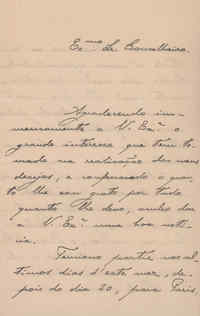 Ex.mo Sr. Conselheiro.
Agradecendo im-
mensamente a V. Ex.a o
grande interesse que tem to-
mado na realização dos meus
desejos, e confessando o quan-
to lhe sou grato por tudo
quanto lhe devo, venho dar
a V. Ex.a uma boa no-
ticia.
Tenciono partir nos ul-
timos dias d'este mez, de-
pois do dia 20, para Paris,